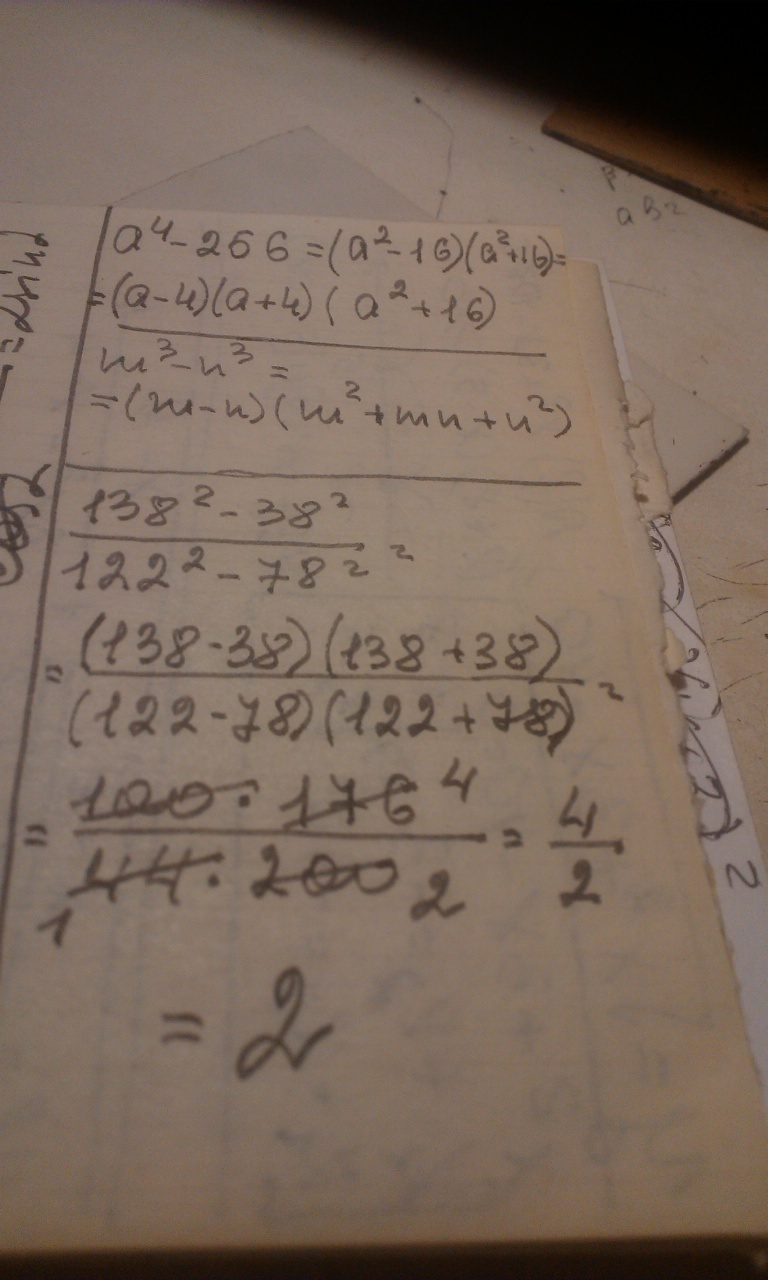 a⁴ - 256 = (a² - 16)(a² + 16) =
= (a - 4)(a + 4)(a² + 16)
m³ - n³ =
= (m - n)(m² + mn + n²)
138² - 38²
122² - 78² =
= (138 - 38)(138 + 38)
(122 - 78)(122 + 78) =
= 100 · 176 4 = 4
1 44 · 200 2 2
= 2